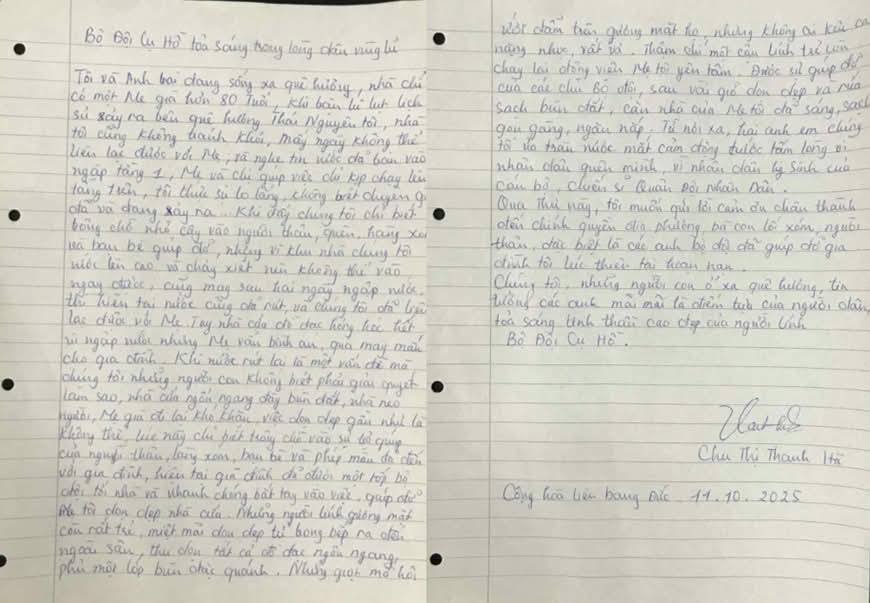 Bộ Đội Cụ Hồ tỏa sáng trong lòng dân vùng lũ
Tôi và Anh trai đang sống xa quê hương, nhà chỉ
có một Mẹ già hơn 80 Tuổi, khi bão lũ lụt lịch
sử xảy ra bên quê hương Thái Nguyên tôi, nhà
tôi cũng không tránh khỏi, mấy ngày không thể
liên lạc được với Mẹ, và nghe tin nước đã tràn vào
ngập tầng 1, Mẹ và chị giúp việc chỉ kịp chạy lên
tầng trên, tôi thực sự lo lắng, không biết chuyện gì
đã và đang xảy ra... Khi đấy chúng tôi chỉ biết
trông chờ nhờ cậy vào người thân, quen, hàng xóm
và bạn bè giúp đỡ, nhưng vì khu nhà chúng tôi
nước lên cao và chảy xiết nên không thể vào
ngay được, cũng may sau hai ngày ngập nước,
thì hiện tại nước cũng đã rút, và chúng tôi đã liên
lạc được với Mẹ. Tuy nhà cửa đồ đạc hỏng hóc hết
vì ngập nước nhưng Mẹ vẫn bình an, quá may mắn
cho gia đình. Khi nước rút lại là một vấn đề mà
chúng tôi những người con không biết phải giải quyết
làm sao, nhà cửa ngổn ngang đầy bùn đất, nhà neo
người, Mẹ già đi lại khó khăn, việc dọn dẹp gần như là
không thể, lúc này chỉ biết trông chờ vào sự trợ giúp
của người thân, hàng xóm, bạn bè và phép màu đã đến
với gia đình, hiện tại gia đình đã được một tốp bộ
đội tới nhà và nhanh chóng bắt tay vào việc, giúp đỡ
Mẹ tôi dọn dẹp nhà cửa. Những người lính gương mặt
còn rất trẻ, miệt mài dọn dẹp từ trong bếp ra đến
ngoài sân, thu dọn tất cả đồ đạc ngổn ngang,
phủ một lớp bùn đặc quánh. Những giọt mồ hôi
ướt đẫm trên gương mặt họ, nhưng không ai kêu ca
nặng nhọc, vất vả. Thậm chí một cậu lính trẻ còn
chạy lại động viên Mẹ tôi yên tâm. Được sự giúp đỡ
của các chú Bộ đội, sau vài giờ dọn dẹp và rửa
sạch bùn đất, căn nhà của Mẹ tôi đã sáng, sạch
gọn gàng, ngăn nắp. Từ nơi xa, hai anh em chúng
tôi vỡ tràn nước mắt cảm động trước tấm lòng vì
nhân dân quên mình, vì nhân dân hy sinh của
cán bộ, chiến sĩ Quân Đội Nhân Dân.
Qua Thư này, tôi muốn gửi lời cảm ơn chân thành
đến chính quyền địa phương, bà con lối xóm, người
thân, đặc biệt là các anh bộ đội đã giúp đỡ gia
đình tôi lúc thiên tai hoạn nạn.
Chúng tôi, những người con ở xa quê hương, tin
tưởng các anh mãi mãi là điểm tựa của người dân,
tỏa sáng tinh thần cao đẹp của người lính
Bộ Đội Cụ Hồ.
Chu Thị Thanh Hà
Cộng hòa Liên bang Đức 11.10.2025